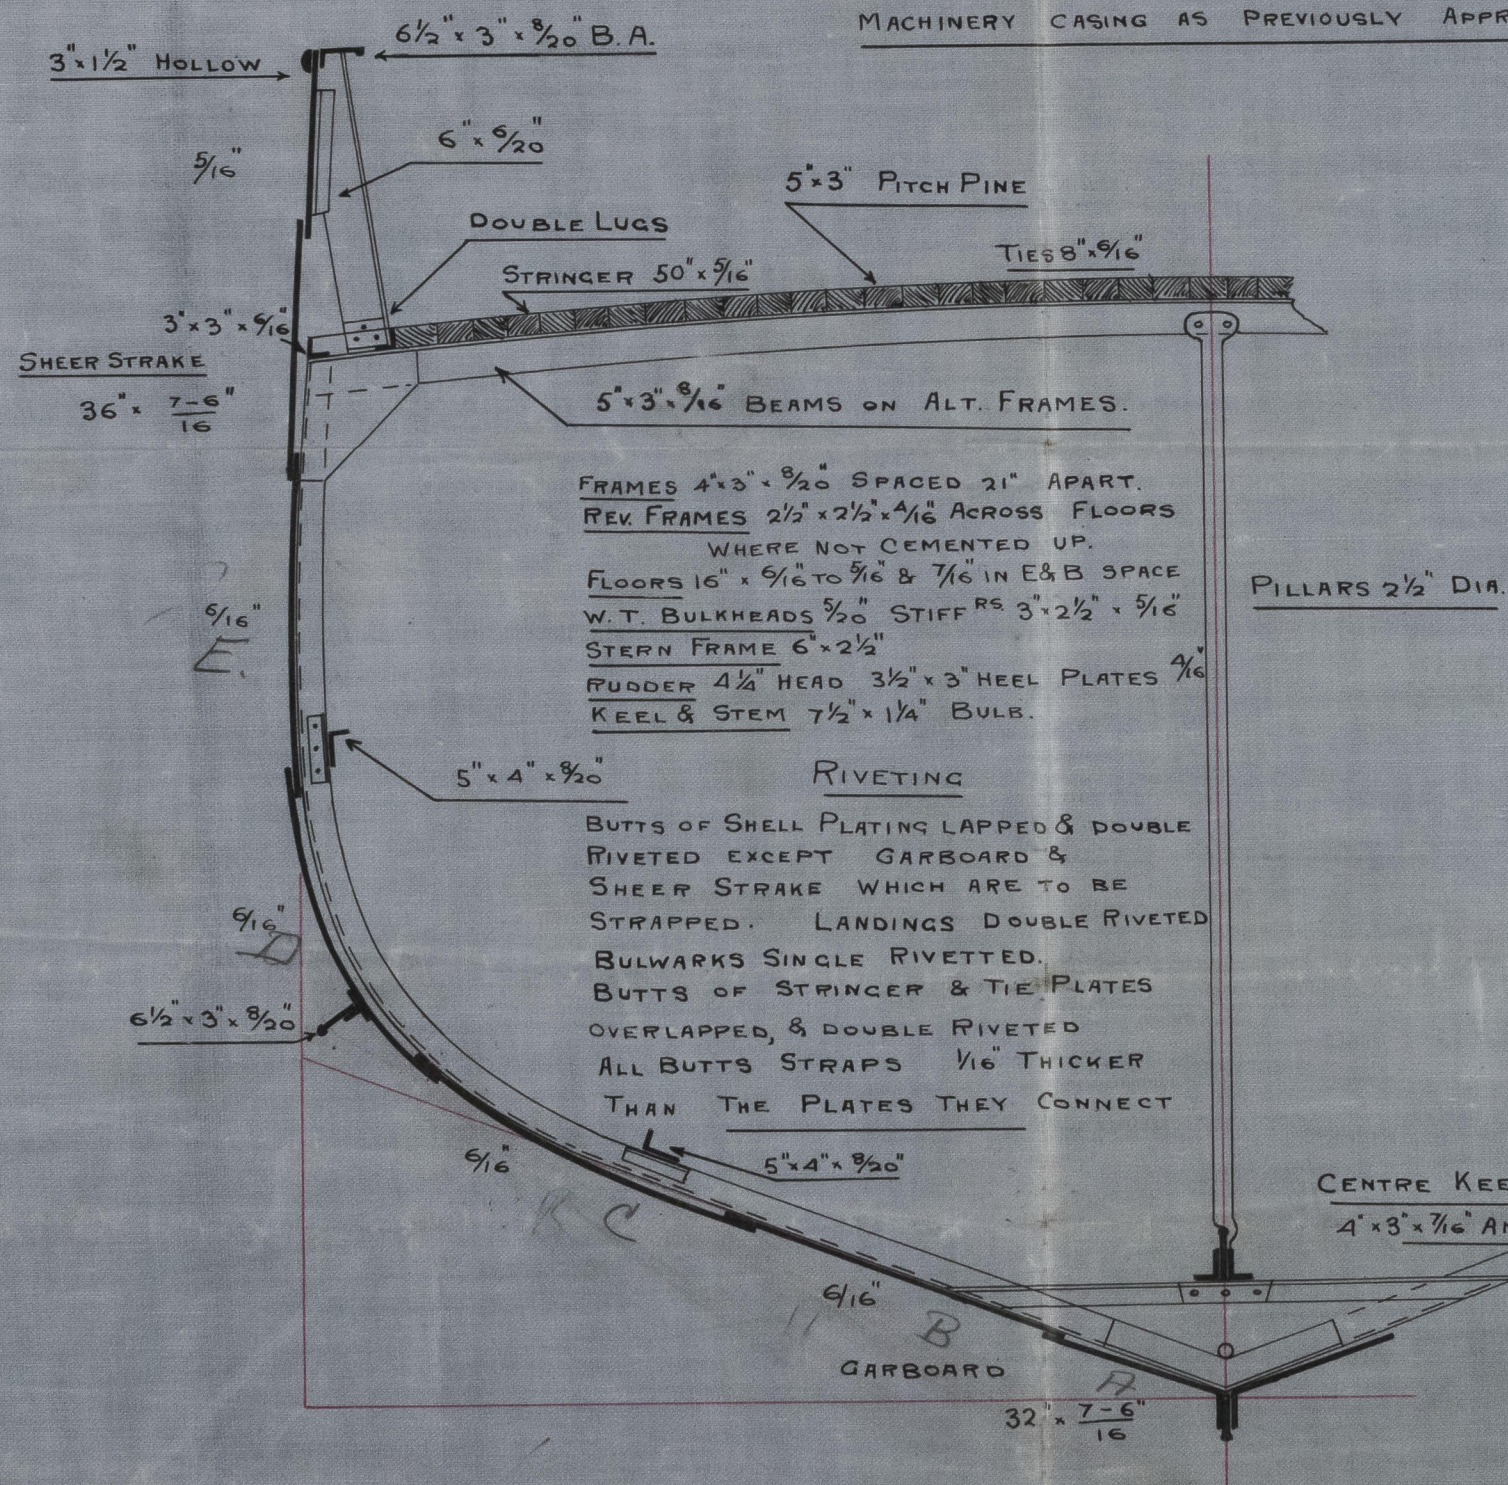 MACHINERY CASING AS PREVIOUSLY APPR
6½" × 3" × 8/20" B.A.
3" × 1½" HOLLOW
5/16"
6" × 6/20"
5" × 3" PITCH PINE
DOUBLE LUGS
TIES 8" × 6/16"
STRINGER 50" × 5/16"
3" × 3" × 6/16"
SHEER STRAKE
36" × 7-6"/16
5" × 3" × 8/16" BEAMS ON ALT. FRAMES.
FRAMES 4" × 3" × 8/20" SPACED 21" APART.
REV. FRAMES 2½" × 2½" × 4/16" ACROSS FLOORS
WHERE NOT CEMENTED UP.
FLOORS 16" × 6/16" TO 5/16" & 7/16" IN E & B SPACE
W. T. BULKHEADS 5/20" STIFFRS. 3" × 2½" × 5/16"
STERN FRAME 6" × 2½"
RUDDER 4¼" HEAD 3½" × 3" HEEL PLATES 4/16"
KEEL & STEM 7½" × 1¼" BULB.
PILLARS 2½" DIA.
6/16"
E.
5" × 4" × 8/20"
RIVETING
BUTTS OF SHELL PLATING LAPPED & DOUBLE
RIVETED EXCEPT GARBOARD &
SHEER STRAKE WHICH ARE TO BE
STRAPPED. LANDINGS DOUBLE RIVETED
BULWARKS SINGLE RIVETTED.
BUTTS OF STRINGER & TIE PLATES
OVERLAPPED, & DOUBLE RIVETED
ALL BUTTS STRAPS 1/16" THICKER
THAN THE PLATES THEY CONNECT
6/16"
D
6½" × 3" × 8/20"
6/16"
C
5" × 4" × 8/20"
CENTRE KEE
4" × 3" × 7/16" AN
6/16"
B
GARBOARD
A
32" × 7-6"/16